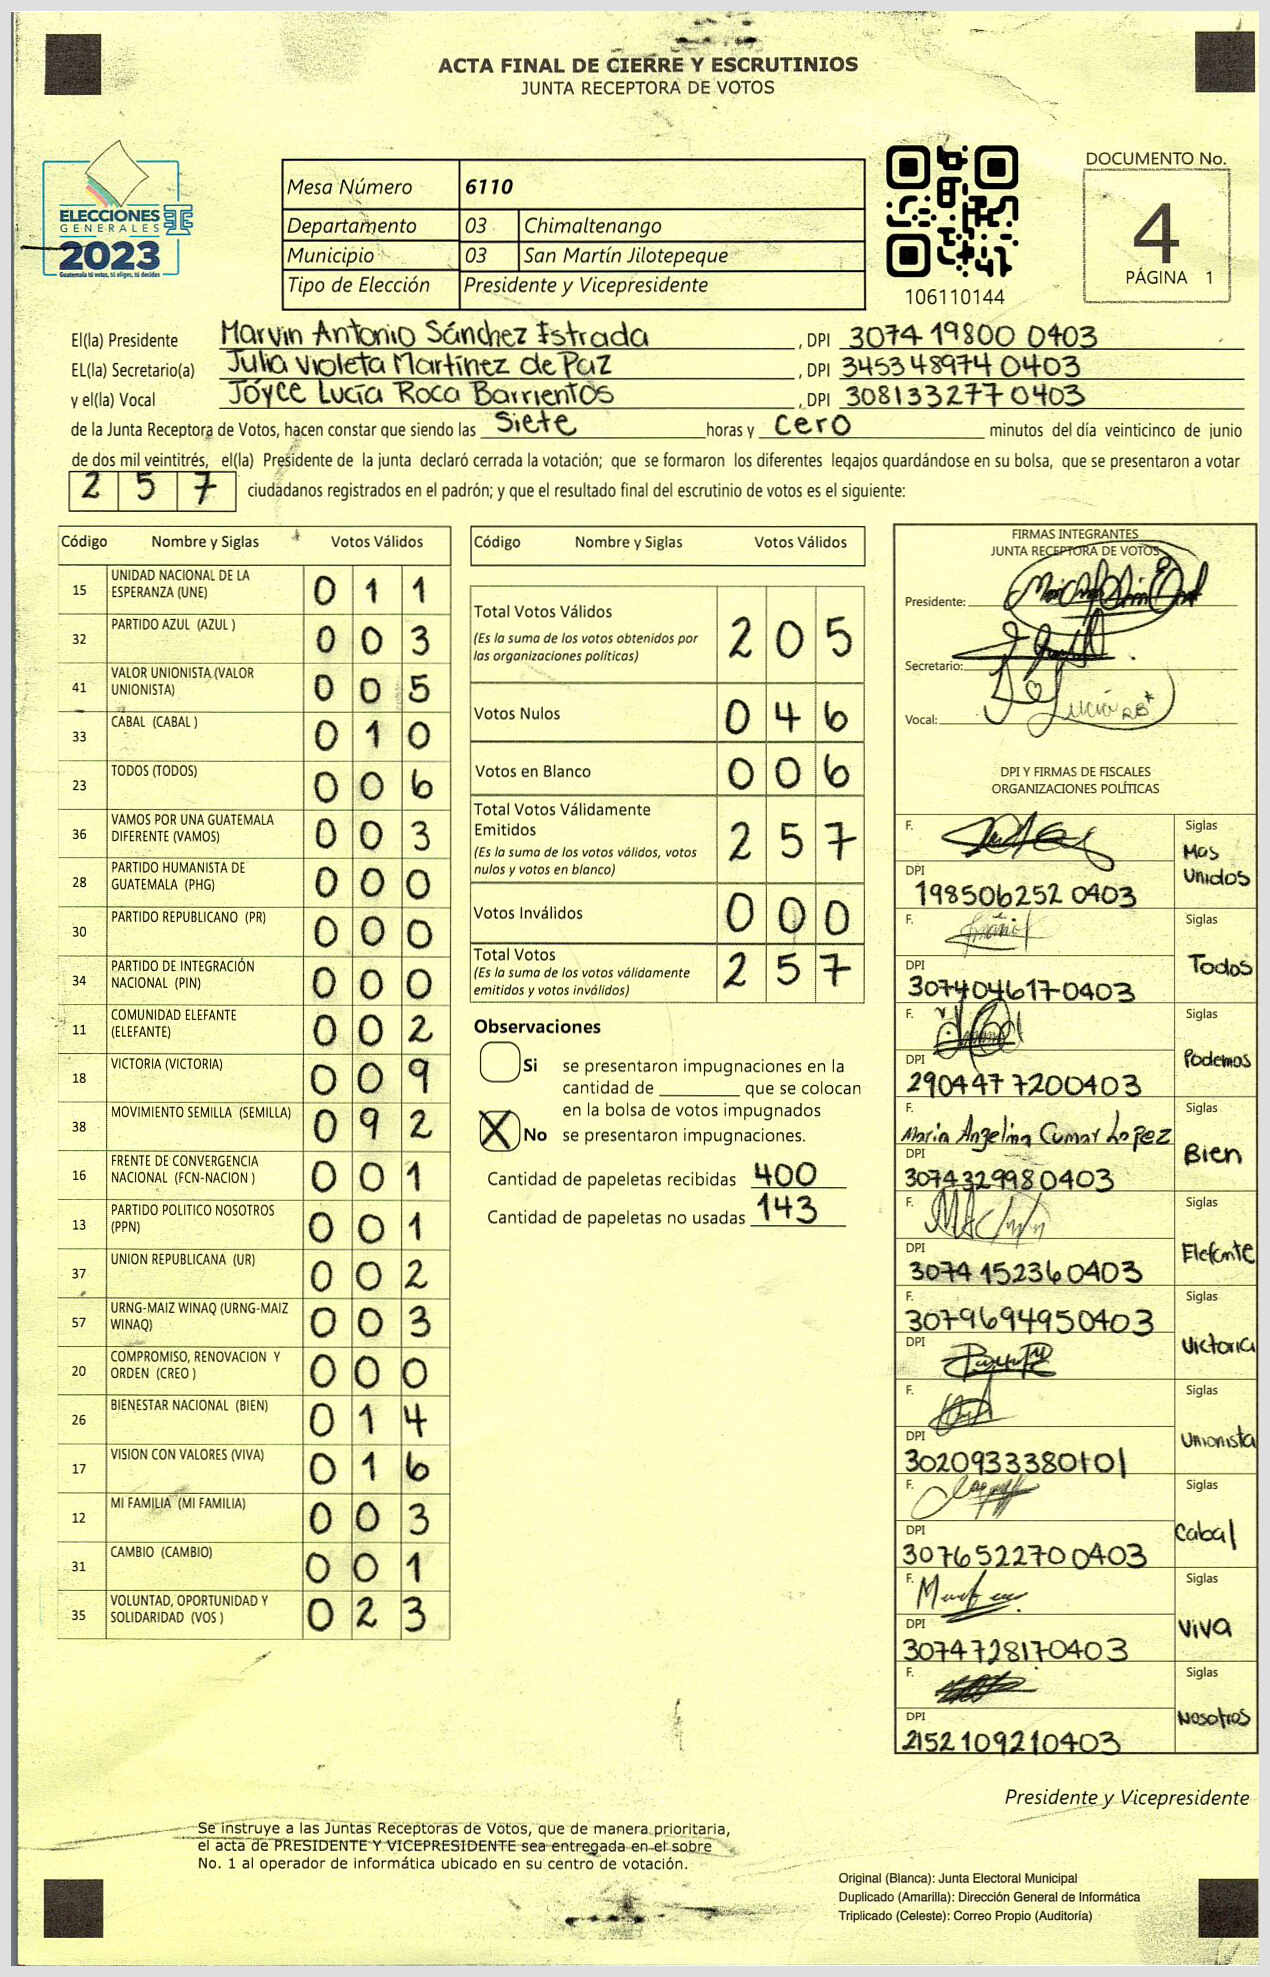 ACTA FINAL DE CIERRE Y ESCRUTINIOS
JUNTA RECEPTORA DE VOTOS
ELECCIONES
GENERALES
2023
Guatemala tú votas, tú eliges, tú decides
Mesa Número 6110
Departamento 03 Chimaltenango
Municipio 03 San Martín Jilotepeque
Tipo de Elección Presidente y Vicepresidente
106110144
DOCUMENTO No.
4
PÁGINA 1
El(la) Presidente Marvin Antonio Sánchez Estrada , DPI 3074 19800 0403
EL(la) Secretario(a) Julia Violeta Martínez de Paz , DPI 345348974 0403
y el(la) Vocal Joyce Lucía Roca Barrientos , DPI 308133277 0403
de la Junta Receptora de Votos, hacen constar que siendo las Siete horas y cero minutos del día veinticinco de junio
de dos mil veintitrés, el(la) Presidente de la junta declaró cerrada la votación; que se formaron los diferentes legajos guardándose en su bolsa, que se presentaron a votar
2 5 7 ciudadanos registrados en el padrón; y que el resultado final del escrutinio de votos es el siguiente:
Código Nombre y Siglas Votos Válidos
15 UNIDAD NACIONAL DE LA ESPERANZA (UNE) 0 1 1
32 PARTIDO AZUL (AZUL ) 0 0 3
41 VALOR UNIONISTA (VALOR UNIONISTA) 0 0 5
33 CABAL (CABAL ) 0 1 0
23 TODOS (TODOS) 0 0 6
36 VAMOS POR UNA GUATEMALA DIFERENTE (VAMOS) 0 0 3
28 PARTIDO HUMANISTA DE GUATEMALA (PHG) 0 0 0
30 PARTIDO REPUBLICANO (PR) 0 0 0
34 PARTIDO DE INTEGRACIÓN NACIONAL (PIN) 0 0 0
11 COMUNIDAD ELEFANTE (ELEFANTE) 0 0 2
18 VICTORIA (VICTORIA) 0 0 9
38 MOVIMIENTO SEMILLA (SEMILLA) 0 9 2
16 FRENTE DE CONVERGENCIA NACIONAL (FCN-NACION ) 0 0 1
13 PARTIDO POLITICO NOSOTROS (PPN) 0 0 1
37 UNION REPUBLICANA (UR) 0 0 2
57 URNG-MAIZ WINAQ (URNG-MAIZ WINAQ) 0 0 3
20 COMPROMISO, RENOVACION Y ORDEN (CREO ) 0 0 0
26 BIENESTAR NACIONAL (BIEN) 0 1 4
17 VISION CON VALORES (VIVA) 0 1 6
12 MI FAMILIA (MI FAMILIA) 0 0 3
31 CAMBIO (CAMBIO) 0 0 1
35 VOLUNTAD, OPORTUNIDAD Y SOLIDARIDAD (VOS ) 0 2 3
Código Nombre y Siglas Votos Válidos
Total Votos Válidos 2 0 5
(Es la suma de los votos obtenidos por
las organizaciones políticas)
Votos Nulos 0 4 6
Votos en Blanco 0 0 6
Total Votos Válidamente
Emitidos 2 5 7
(Es la suma de los votos válidos, votos
nulos y votos en blanco)
Votos Inválidos 0 0 0
Total Votos 2 5 7
(Es la suma de los votos válidamente
emitidos y votos inválidos)
Observaciones
Si se presentaron impugnaciones en la
cantidad de ________ que se colocan
en la bolsa de votos impugnados
X No se presentaron impugnaciones.
Cantidad de papeletas recibidas 400
Cantidad de papeletas no usadas 143
FIRMAS INTEGRANTES
JUNTA RECEPTORA DE VOTOS
Presidente:
Secretario:
Vocal: Lucía RB
DPI Y FIRMAS DE FISCALES
ORGANIZACIONES POLÍTICAS
F. Siglas
Mas
Unidos
DPI
198506252 0403
F. Siglas
Todos
DPI
3074046170403
F. Siglas
Podemos
DPI
2904477200403
F. Siglas
María Angelina Cumar Lopez
Bien
DPI
3074329980403
F. Siglas
Elefante
DPI
3074 152360403
F. Siglas
3079694950403
Victoria
DPI
F. Siglas
Unionista
DPI
3020933380101
F. Siglas
Cabal
DPI
3076522700403
F. Siglas
Viva
DPI
3074728170403
F. Siglas
Nosotros
DPI
2152109210403
Presidente y Vicepresidente
Se instruye a las Juntas Receptoras de Votos, que de manera prioritaria,
el acta de PRESIDENTE Y VICEPRESIDENTE sea entregada en el sobre
No. 1 al operador de informática ubicado en su centro de votación.
Original (Blanca): Junta Electoral Municipal
Duplicado (Amarilla): Dirección General de Informática
Triplicado (Celeste): Correo Propio (Auditoría)